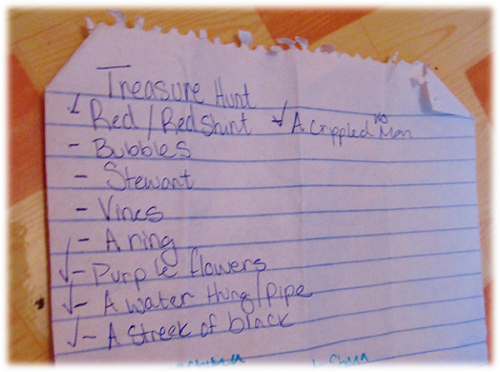 Treasure Hunt
✓ Red / Redshirt ✓ A crippled no Man
- Bubbles
- Stewart
- Vines
- A ring
✓ - Purple flowers
✓ - A water thing/pipe
✓ - A streek of black